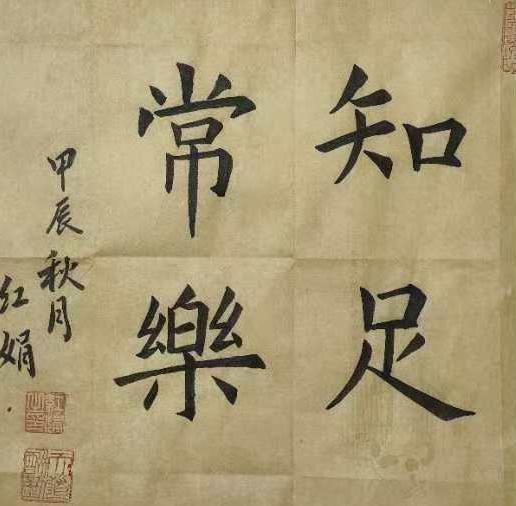 知足
常樂
甲辰秋月
红娟